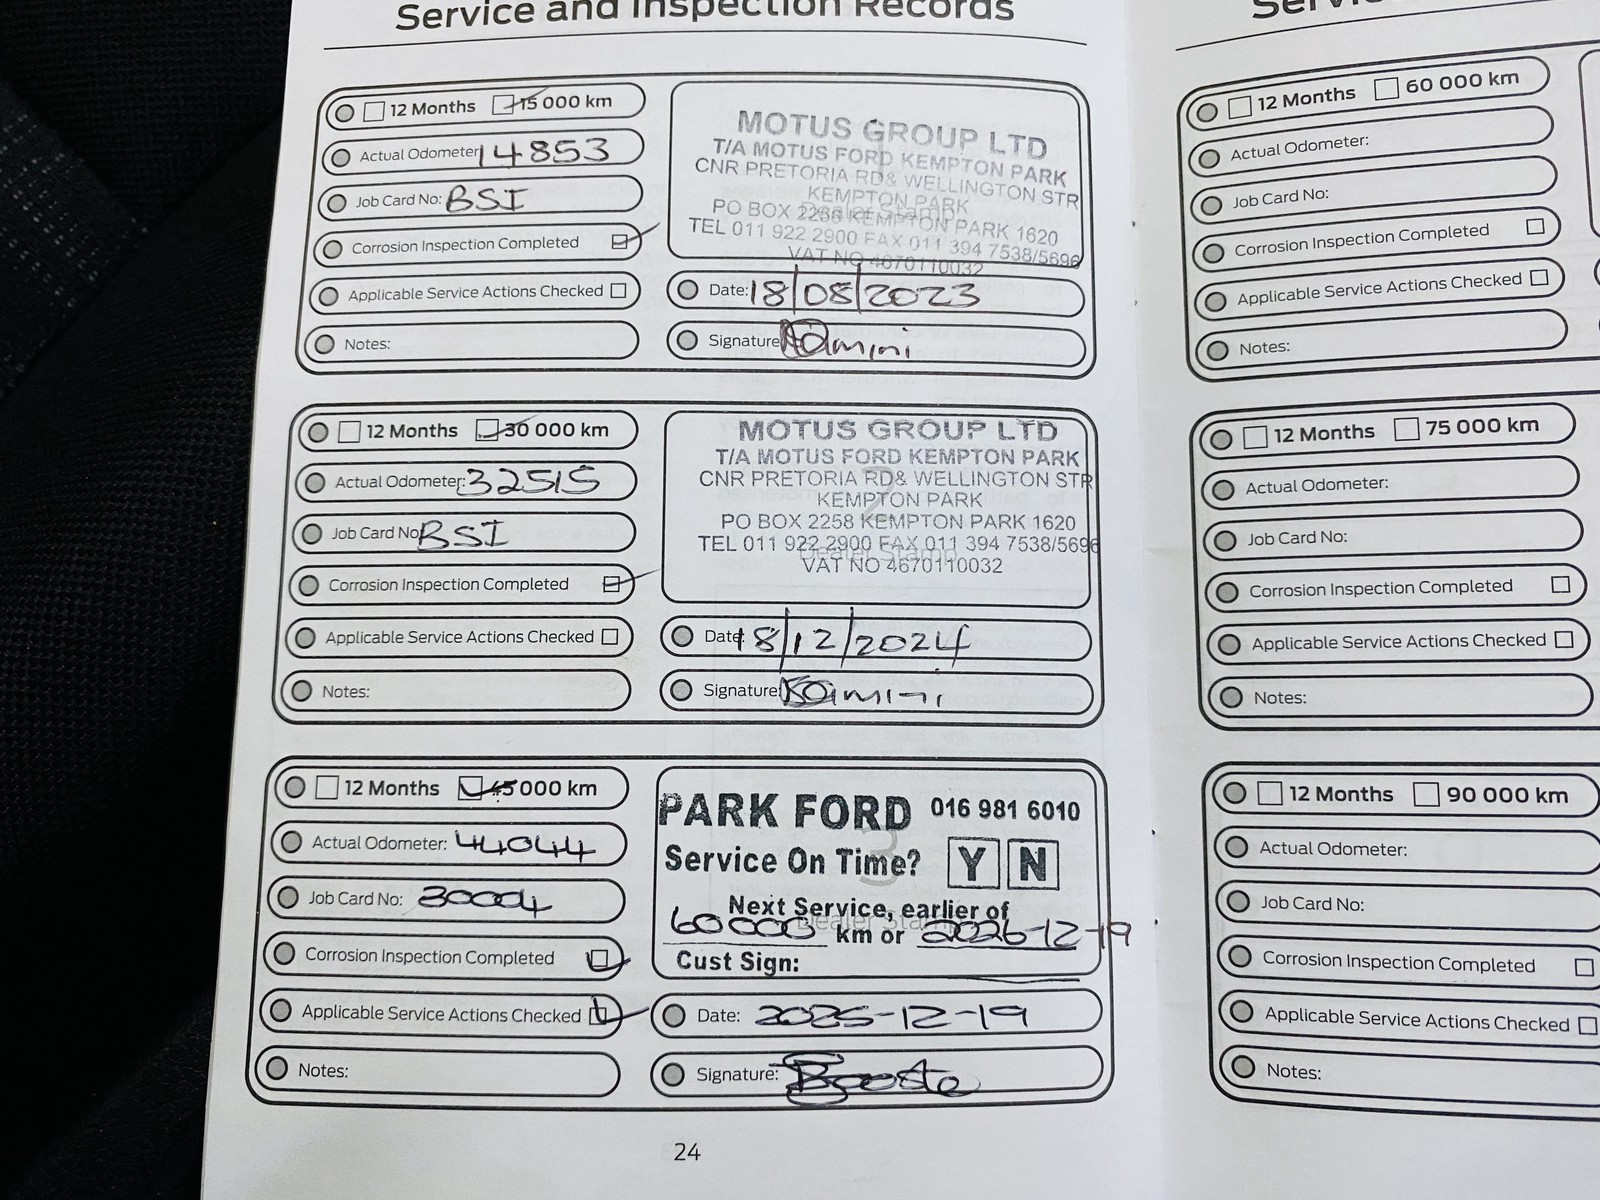 Service and Inspection Records
12 Months 15 000 km
Actual Odometer: 14853
Job Card No: BSI
Corrosion Inspection Completed
Applicable Service Actions Checked
Notes:
MOTUS GROUP LTD
T/A MOTUS FORD KEMPTON PARK
CNR PRETORIA RD& WELLINGTON STR
KEMPTON PARK
PO BOX 2258 KEMPTON PARK 1620
TEL 011 922 2900 FAX 011 394 7538/5696
VAT NO 4670110032
Date: 18/08/2023
Signature:
12 Months 30 000 km
Actual Odometer: 32515
Job Card No: BSI
Corrosion Inspection Completed
Applicable Service Actions Checked
Notes:
MOTUS GROUP LTD
T/A MOTUS FORD KEMPTON PARK
CNR PRETORIA RD& WELLINGTON STR
KEMPTON PARK
PO BOX 2258 KEMPTON PARK 1620
TEL 011 922 2900 FAX 011 394 7538/5696
Dealer Stamp
VAT NO 4670110032
2
Date: 18/12/2024
Signature:
12 Months 45 000 km
Actual Odometer: 44044
Job Card No: 30004
Corrosion Inspection Completed
Applicable Service Actions Checked
Notes:
PARK FORD 016 981 6010
3
Service On Time? Y N
Next Service, earlier of
Dealer Stamp
60 000 km or 2026-12-19
Cust Sign:
Date: 2025-12-19
Signature:
24
12 Months 60 000 km
Actual Odometer:
Job Card No:
Corrosion Inspection Completed
Applicable Service Actions Checked
Notes:
12 Months 75 000 km
Actual Odometer:
Job Card No:
Corrosion Inspection Completed
Applicable Service Actions Checked
Notes:
12 Months 90 000 km
Actual Odometer:
Job Card No:
Corrosion Inspection Completed
Applicable Service Actions Checked
Notes: